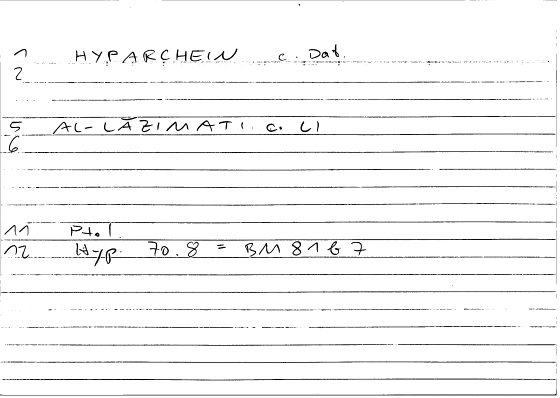 1 HYPARCHEIN c. Dat.
2
5 AL-LĀZIMATI c. LI
6
11 Ptol.
12 Hyp. 70.8 = BM 81b7